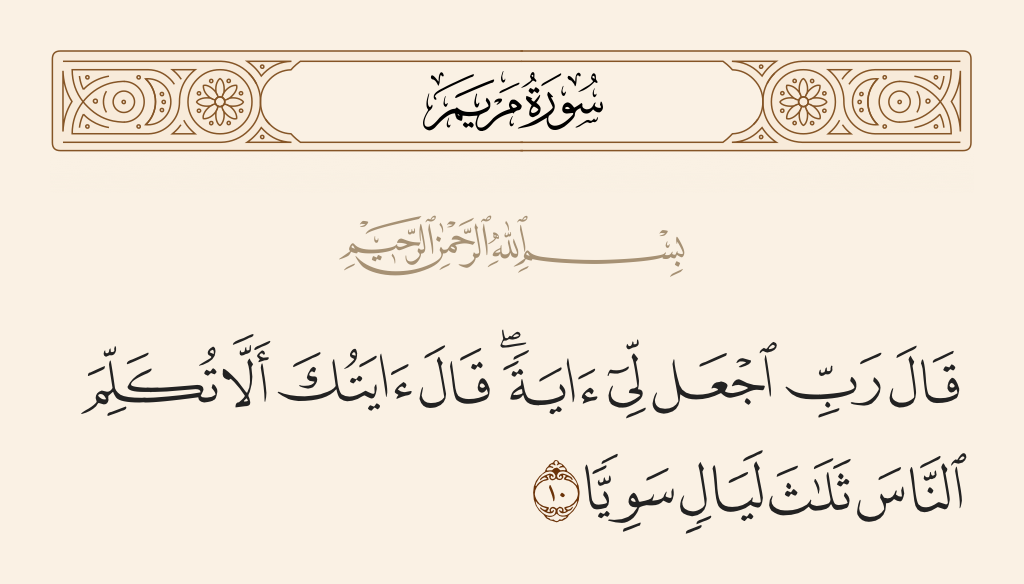 سُورَةُ مَرْيَمَ
بِسْمِ ٱللَّهِ ٱلرَّحْمَٰنِ ٱلرَّحِيمِ
قَالَ رَبِّ ٱجْعَل لِّىٓ ءَايَةً ۖ قَالَ ءَايَتُكَ أَلَّا تُكَلِّمَ
ٱلنَّاسَ ثَلَٰثَ لَيَالٍ سَوِيًّا ١٠